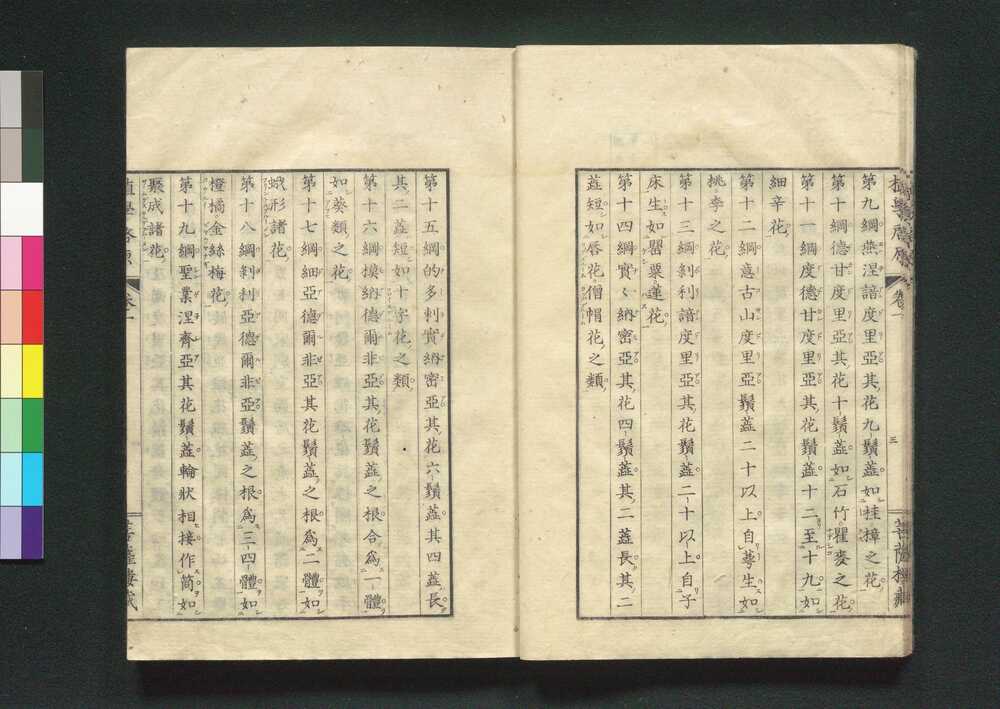 植學啓原 卷一 三 菩薩樓藏
第九綱燕涅諳度里亞其花九鬚蕋如桂樟之花
第十綱德甘度里亞其花十鬚蕋如石竹瞿麥之花
第十一綱度德甘度里亞其花鬚蕋十二至十九如
細辛花
第十二綱意古山度里亞鬚蕋二十以上自萼生如
桃李之花
第十三綱剝利諳度里亞其花鬚蕋二十以上自子
床生如罌粟蓮花
第十四綱實〻納密亞其花四鬚蕋其二蕋長其二
蕋短如唇花僧帽花之類
第十五綱的多剌實納密亞其花六鬚蕋其四蕋長
其二蕋短如十字花之類
第十六綱模納德爾非亞其花鬚蕋之根合爲一體
如葵類之花
第十七綱細亞德爾非亞其花鬚蕋之根爲二體如
蛾形諸花
第十八綱剝利亞德爾非亞鬚蕋之根爲三四體如
橙橘金絲梅花
第十九綱聖業涅齊亞其花鬚蕋輪狀相接作筒如
聚成諸花
植學啓原 卷一 菩薩樓藏